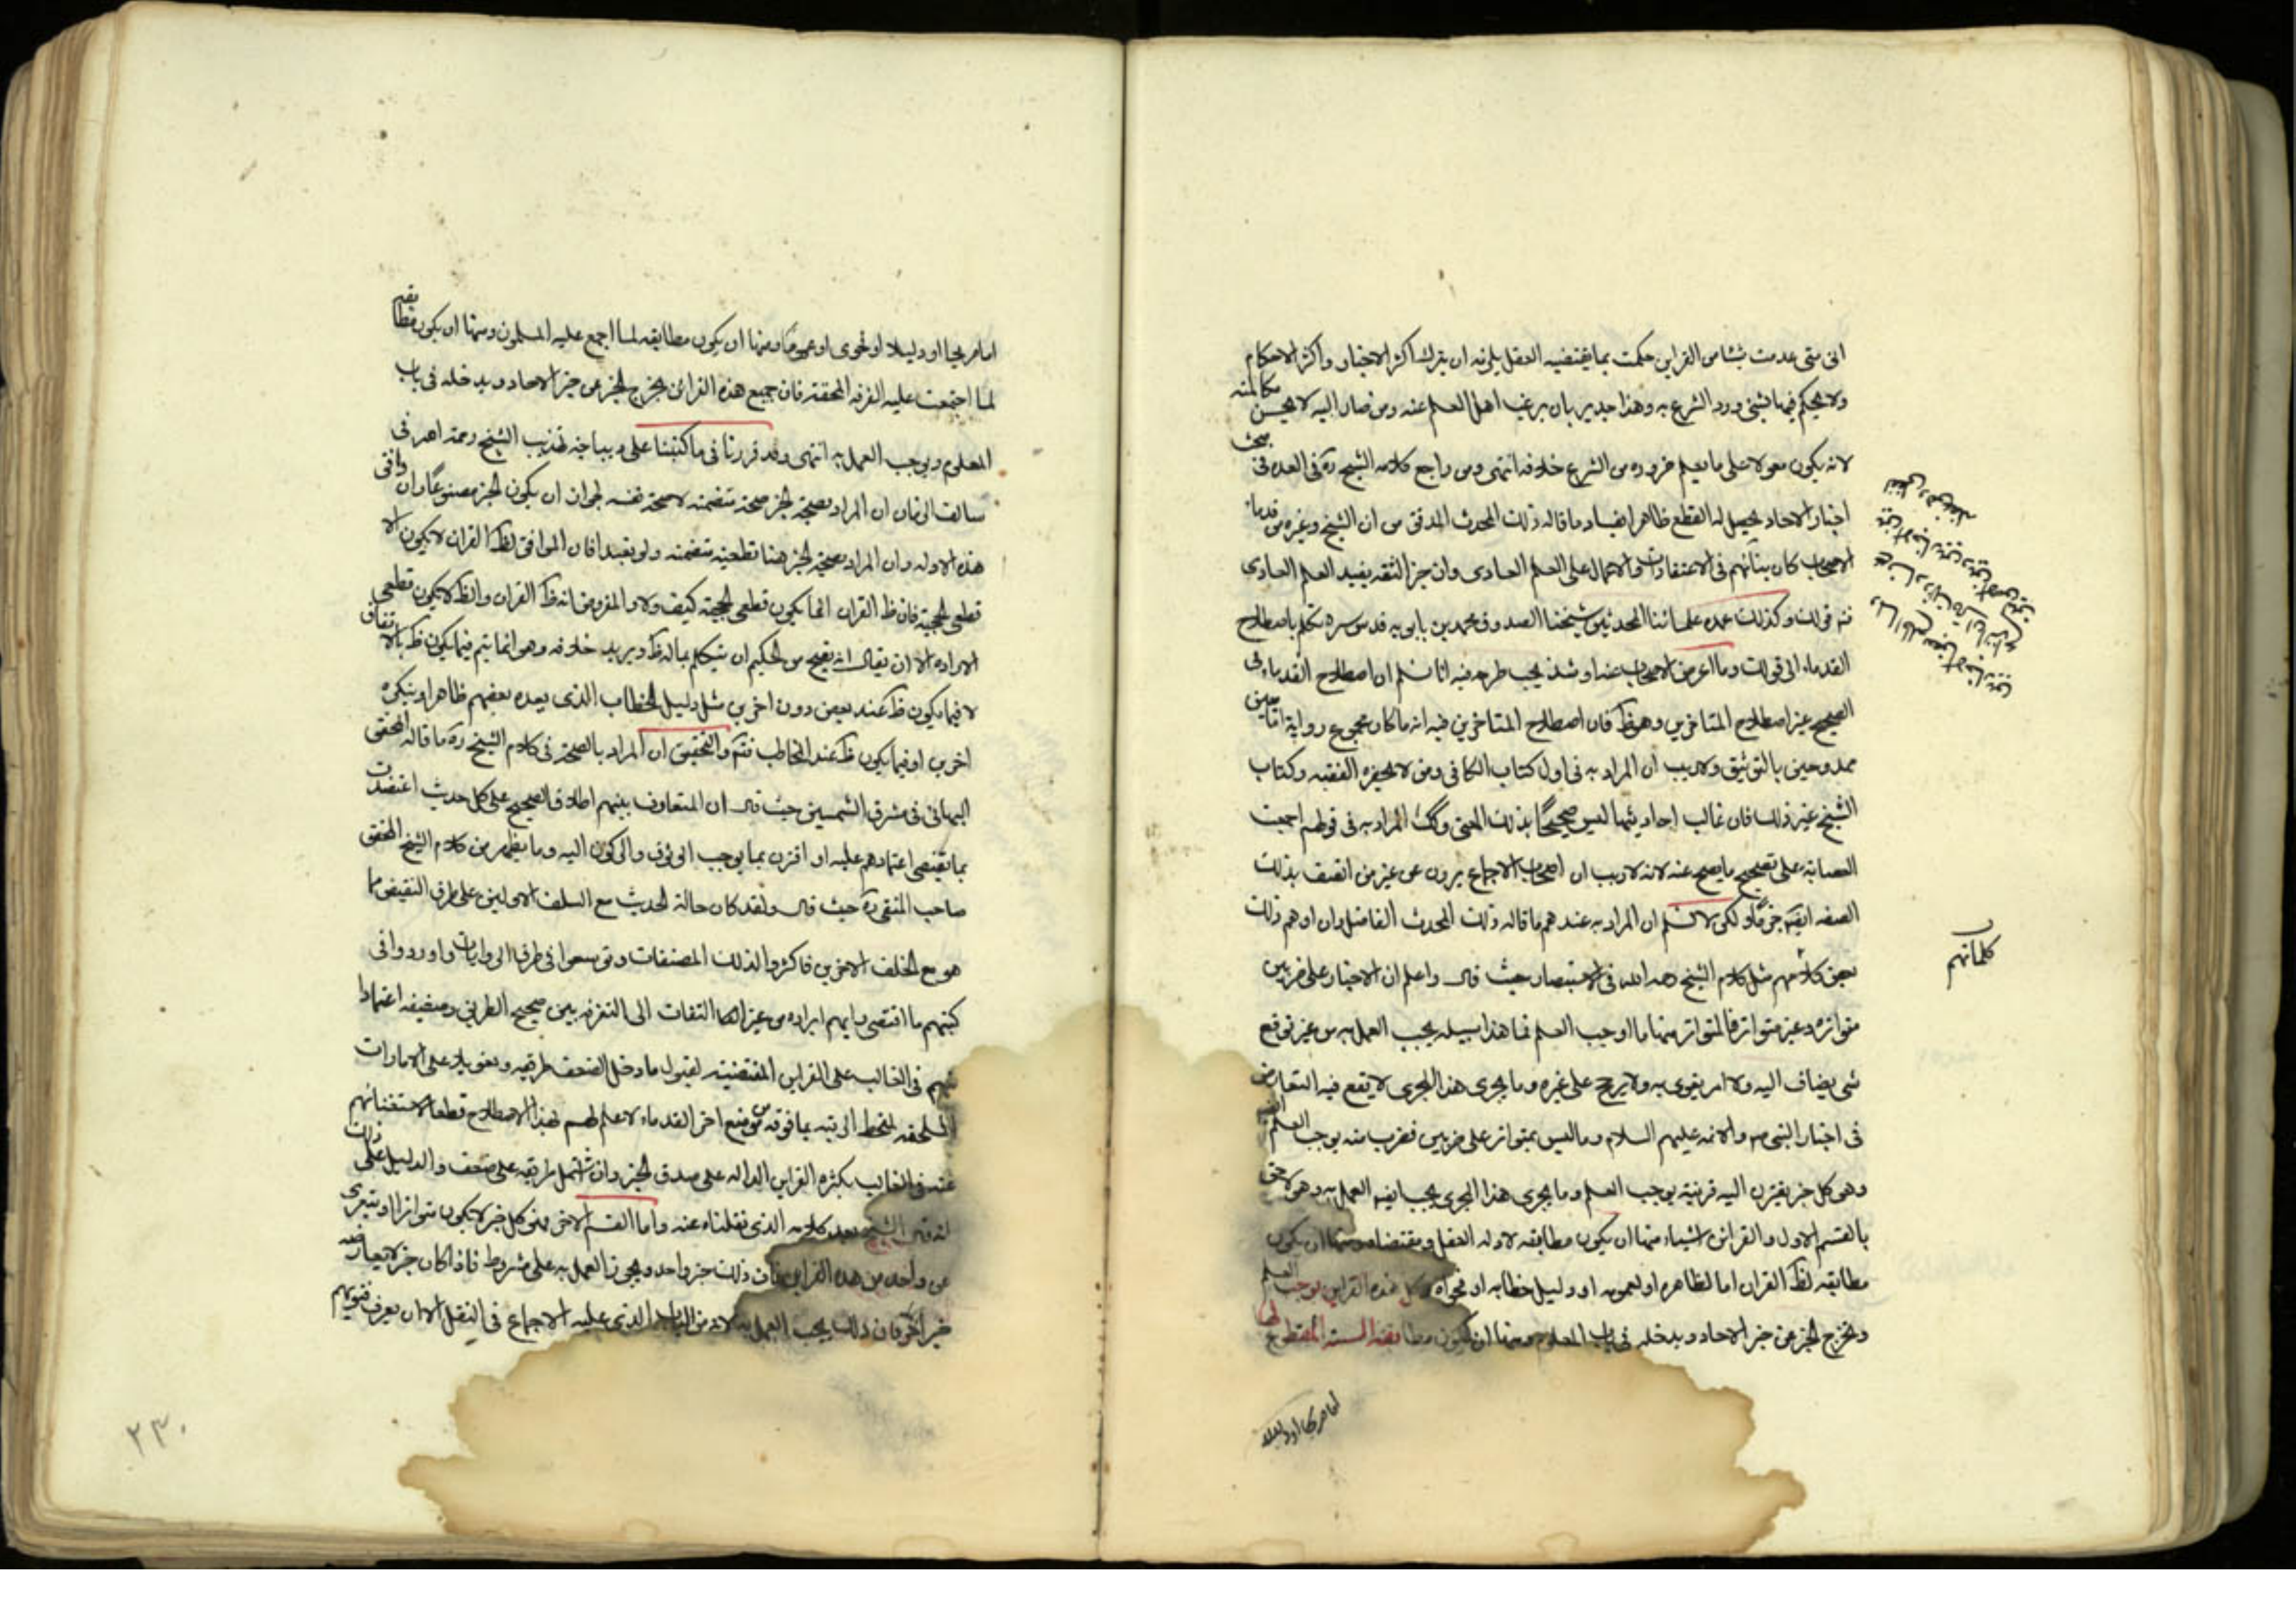 انى متى عدمت شيئا من القراين حكمت بما يقتضيه العقل يلزمه ان يترك اكثر الاخبار واكثر الاحكام
ولا يحكم فيها بشئ ورد الشرع به وهذا حد يرغب اهل العلم عنه ومن صار اليه لا يحسن مكالمته
لانه يكون معولا على ما يعلم ضروره من الشرع خلافه انتهى ومن راجع كلام الشيخ ره فى العده فى بحث
اخبار الاحاد يحصل له القطع ظاهرا بفساد ما قاله ذلك المحدث المدقق من ان الشيخ وغيره من قدماء
الاصحاب كان بنائهم فى الاعتقادات والاعمال على العلم العادى وان خبر الثقه يفيد العلم العادى
ثم قولك وكذلك عمده علمائنا المحدثين شيخنا الصدوق محمد بن بابويه قدس سره تكلم باصطلاح
القدماء الى قولك وما اعرض الاصحاب عنه او شذ يجب طرحه فيه انا نسلم ان اصطلاح القدماء فى
الصحيح غير اصطلاح المتاخرين وهو ظ فان اصطلاح المتاخرين فيه انه ما كان مجموع رواية اماميين
ممدوحين بالتوثيق ولا ريب ان المراد به فى اول كتاب الكافى ومن لا يحضره الفقيه وكتاب
الشيخ غير ذلك فان غالب احاديثها ليس صحيحا بذلك المعنى وكك المراد به فى قولهم اجمعت
العصابه على تصحيح ما يصح عنه لانه لا ريب ان اصحاب الاجماع يروون عن غير من اتصف بذلك
الصفه ايضه جزما ولكن لا نسلم ان المراد به عندهم ما قاله ذلك المحدث الفاضل وان اوهم ذلك
بعض كلامهم مثل كلام الشيخ رحمه الله فى الاستبصار حيث قال واعلم ان الاخبار على ضربين
متواتره وغير متواتر فالمتواتر منها ما اوجب العلم فما هذا سبيله يجب العمل به من غير توقع
شى يضاف اليه ولا امر يقوى به ولا يرجح على غيره وما يجرى هذا المجرى لا يقع فيه التعارض
فى اخبار النبى ص والائمه عليهم السلام وما ليس بمتواتر على ضربين فضرب منه يوجب العلم ايضه
وهو كل خبر يقترن اليه قرينة يوجب العلم وما يجرى هذا المجرى يجب ايضه العمل به وهو لاحق
بالقسم الاول والقراين اشياء منها ان يكون مطابقه لادله العقل ومقتضاه ومنها ان يكون
مطابقه لظ القران اما لظاهره او لعمومه او دليل خطابه او فحواه وكل هذه القراين يوجب العلم
ويخرج الخبر عن خبر الاحاد ويدخله فى باب المعلوم ومنها ان يكون مطابقه السنه المقطوع لها
كلماتهم
اما صريحا او دليلا
اما صريحا او دليلا او فحوى او عموما ومنها ان يكون مطابقه لما اجمع عليه المسلمون ومنها ان يكون مطابقه
لما اجتمعت عليه الفرقه المحقه فان جميع هذه القرائن يخرج الخبر من خبر الاحاد ويدخله فى باب
المعلوم ويوجب العمل به انتهى وقد قررنا فى ما كتبنا على ديباجه تهذيب الشيخ رحمه الله فى
سالف الزمان ان المراد بصحة الخبر صحة متضمنه لا صحة نفسه لجواز ان يكون الخبر مصنوعا وان وافق
هذه الادله وان المراد بصحة الخبر هنا قطعيه متضمنه ولو بعيدا فان الموافق لظ القران لا يكون الا
قطعى الحجية فان ظ القران انما يكون قطعى الحجيته كيف ولا والمفروض انه ظ القران والظ لا يكون قطعى
الاراده الا ان يقال انه يقبح من الحكيم ان يتكلم بما له ظ ويريد خلافه وهو انما يتم فيما يكون ظ بالاتفاق
لا فيما يكون ظ عند بعض دون اخرين مثل دليل الخطاب الذى يعده بعضهم ظاهرا وينكره
اخرين او فيما يكون ظ عند المخاطب فتم والتحقيق ان المراد بالصحة فى كلام الشيخ ره ما قاله المحقق
البهائى فى مشرق الشمسين حيث قال ان المتعارف بينهم اطلاق الصحيح على كل حديث اعتضدت
بما يقتضى اعتمادهم عليه او اقترن بما يوجب الوثوق والركون اليه وما يظهر من كلام الشيخ المحقق
صاحب المنتقى ره حيث قال ولقد كان حالة الحديث مع السلف الاولين على طرف النقيض مما
هو مع الخلف الاخرين فاكثروا لذلك المصنفات وتوسعوا فى طرق الروايات واوردوا فى
كتبهم ما اقتضى رايهم ايراده من غير التفات الى التفرقه بين صحيح الطريق وضعيفه اعتمادا
منهم فى الغالب على القراين المقتضية لقبول ما دخل الضعف طريقه وتعويلا على الامارات
الملحقه لمنحط الرتبه بما فوقه من موضع اخر القدماء لا علم لهم لهذا الاصطلاح قطعا لاستغنائهم
عنه فى الغالب بكثره القراين الداله على صدق الخبر وان اشتمل طريقه على ضعف والدليل على ذلك
انه قال الشيخ بعد كلامه الذى نقلناه عنه واما القسم الاخر فهو كل خبر لا يكون متواترا ويتعرى
عن واحد من هذه القراين فان ذلك خبر واحد ويجوز العمل به على شروط فاذا كان خبر لا يعارضه
خبر اخر فان ذلك يجب العمل به لانه من الباب الذى عليه الاجماع فى النقل الا ان يعرف فتويهم
۲۳۰